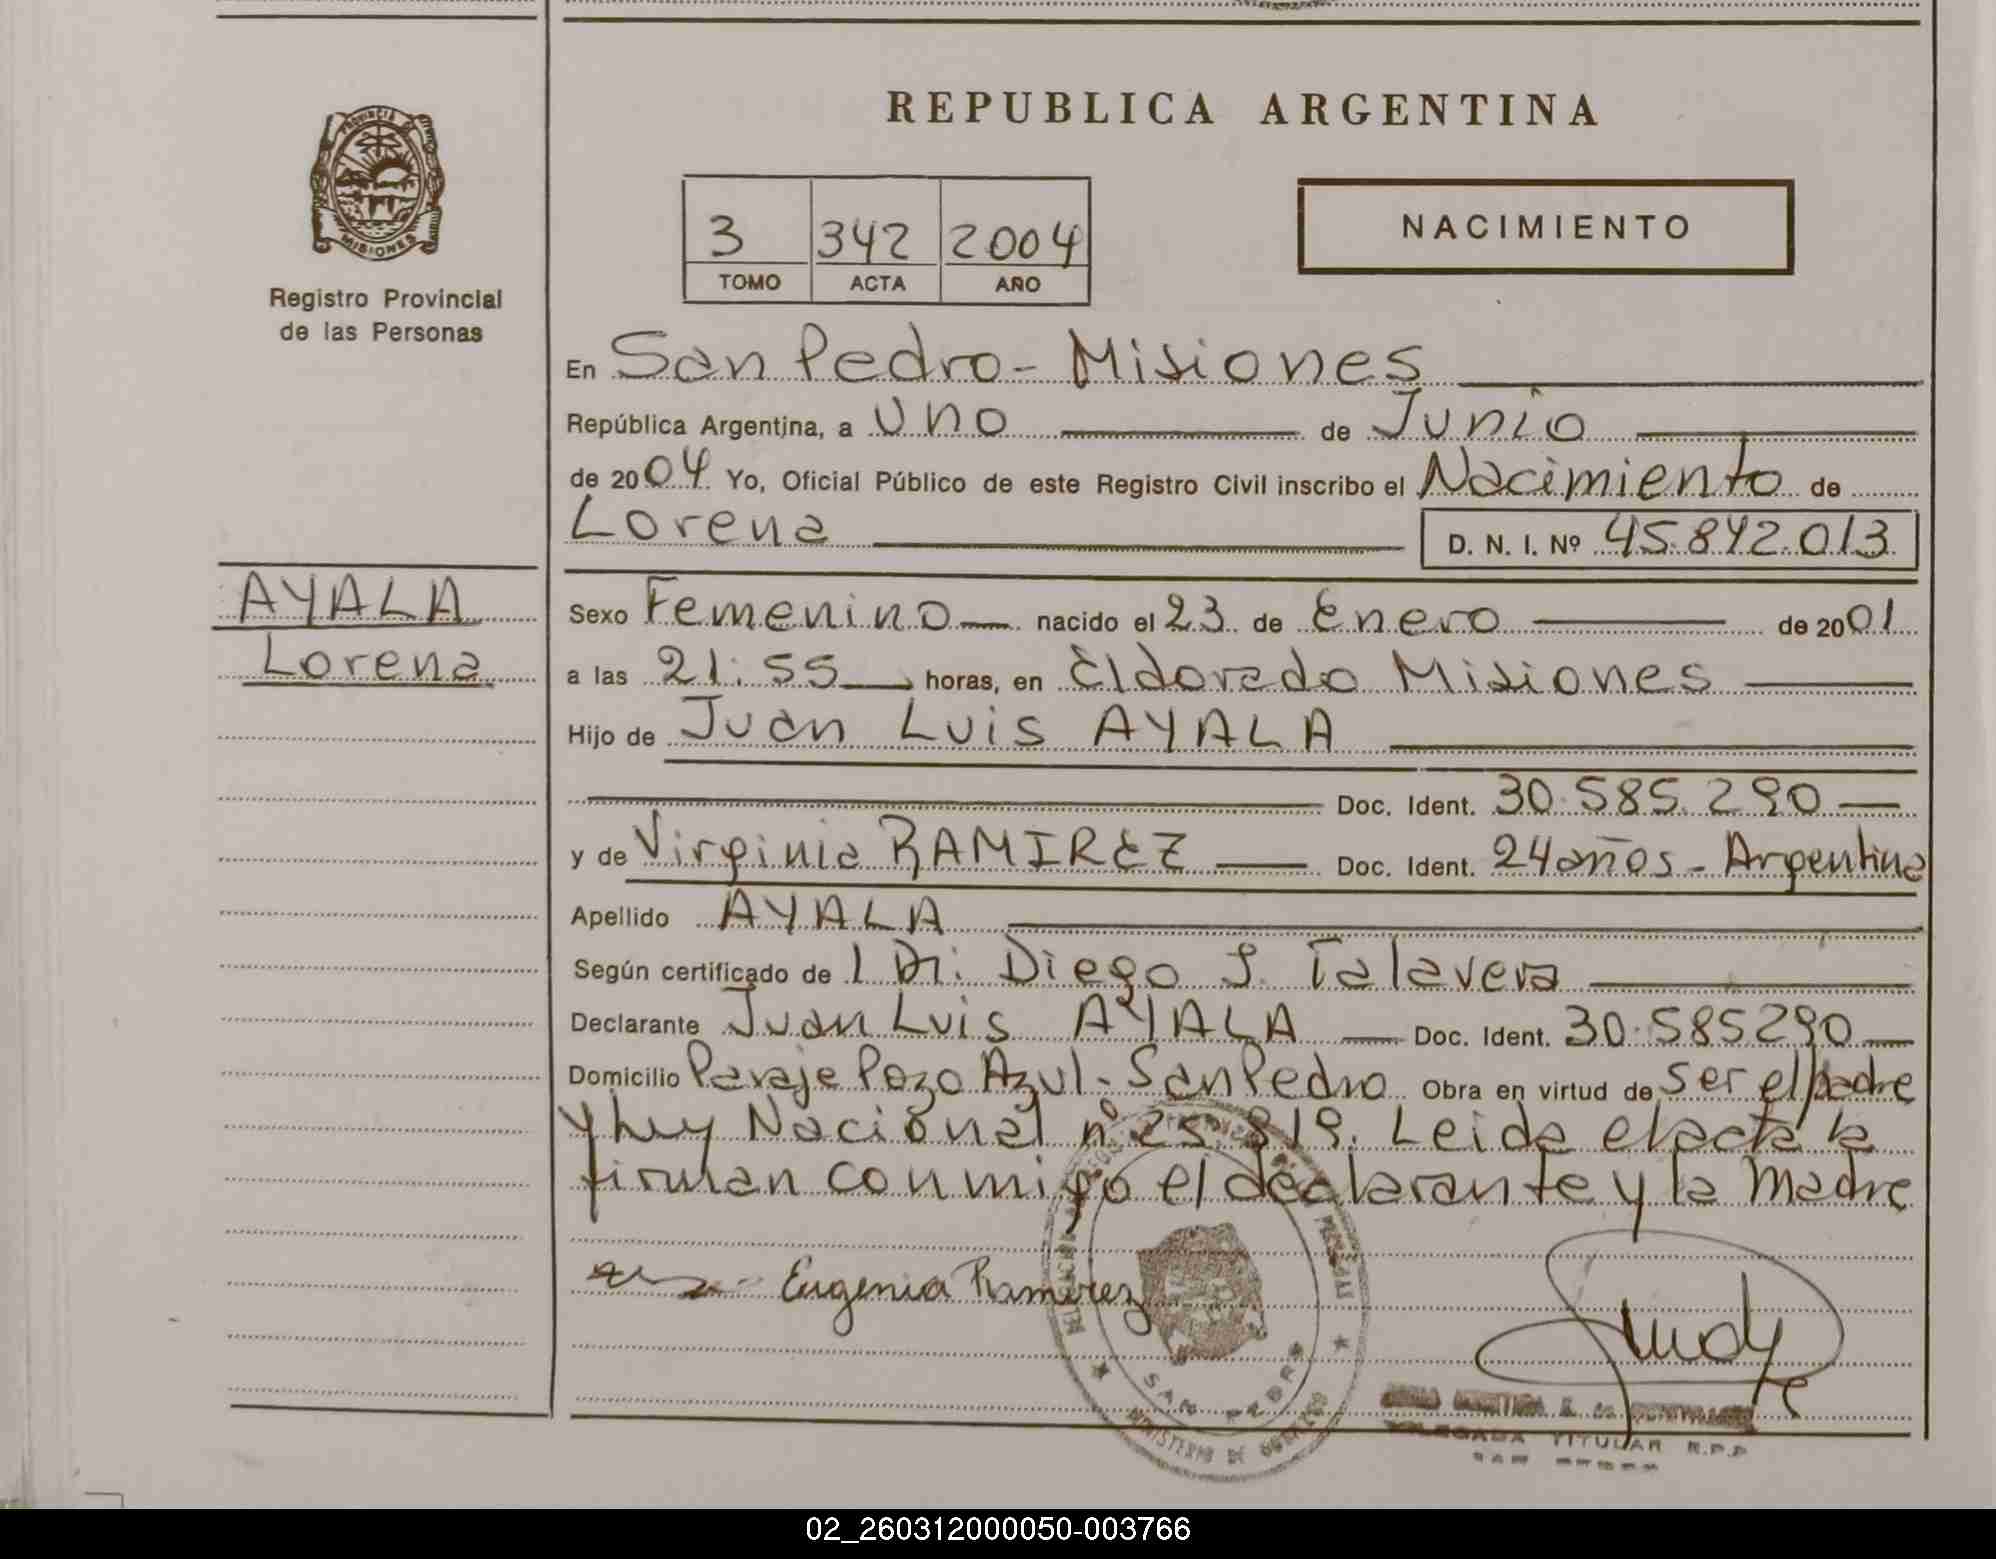 REPUBLICA ARGENTINA
PROVINCIA DE MISIONES
Registro Provincial
de las Personas
3 342 2004
TOMO ACTA AÑO
NACIMIENTO
En San Pedro - Misiones
República Argentina, a uno de Junio
de 2004 Yo, Oficial Público de este Registro Civil inscribo el Nacimiento de
Lorena D. N. I. Nº 45.842.013
AYALA
Lorena
Sexo Femenino nacido el 23 de Enero de 2001
a las 21:55 horas, en Eldorado Misiones
Hijo de Juan Luis AYALA
Doc. Ident. 30.585.290
y de Virginia RAMIREZ Doc. Ident. 24 años - Argentina
Apellido AYALA
Según certificado de Diego Talavera
Declarante Juan Luis AYALA Doc. Ident. 30.585290
Domicilio Paraje Pozo Azul - San Pedro Obra en virtud de ser el padre
y ley Nacional nº 25.819. Leida el acta la
firman conmigo el declarante y la Madre
Eugenia Ramirez
SAN PEDRO
MINISTERIO DE GOBIERNO
TITULAR R.P.P
02_260312000050-003766